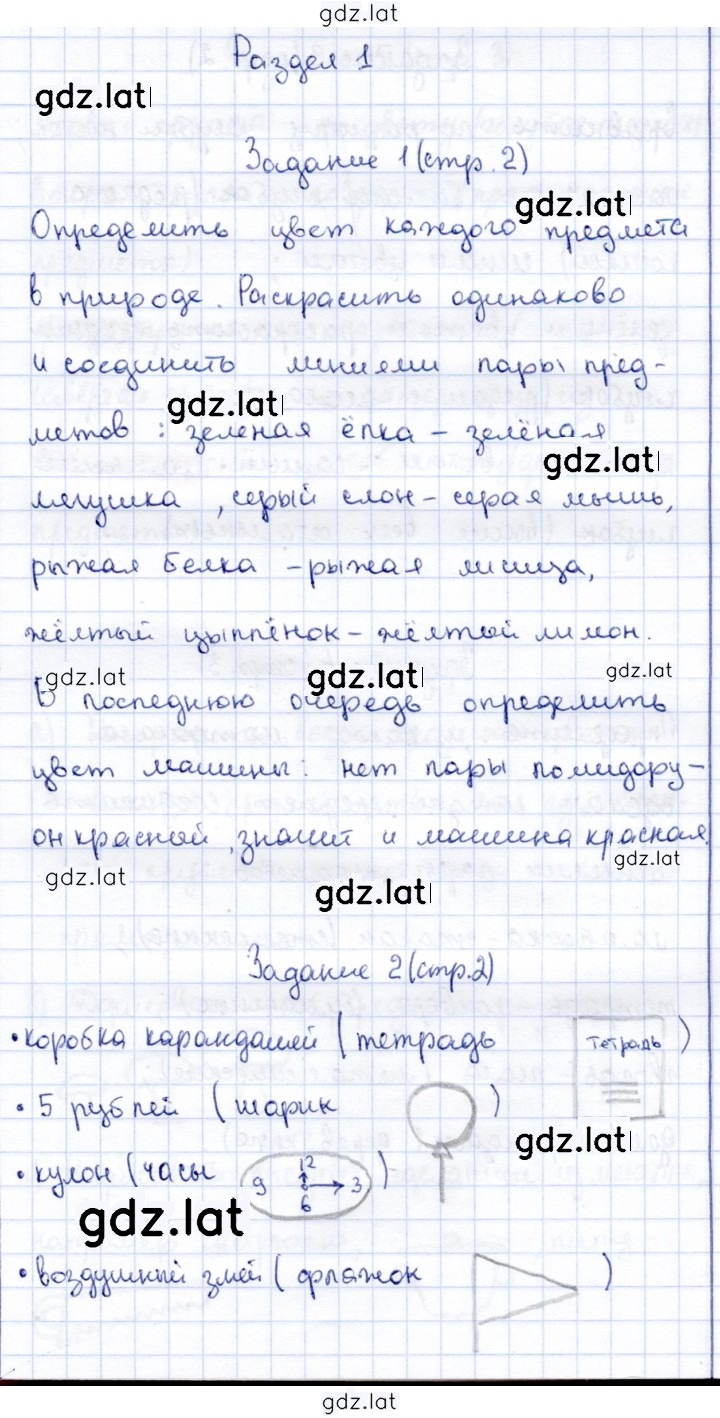 gdz.lat
Раздел 1
gdz.lat
Задание 1 (стр. 2)
gdz.lat
Определить цвет каждого предмета
в природе. Раскрасить одинаково
и соединить линиями пары пред-
gdz.lat
метов : зеленая ёлка – зелёная
gdz.lat
лягушка , серый слон – серая мышь,
рыжая белка – рыжая лисица,
жёлтый цыплёнок – жёлтый лимон.
gdz.lat gdz.lat gdz.lat
В последнюю очередь определить
цвет машины: нет пары помидору –
он красный , значит и машина красная.
gdz.lat gdz.lat
gdz.lat
Задание 2 (стр.2)
• коробка карандашей ( тетрадь Тетрадь )
• 5 рублей ( шарик )
gdz.lat
• кулон ( часы 9 12 3 6 )
gdz.lat
• воздушный змей ( флажок )
gdz.lat